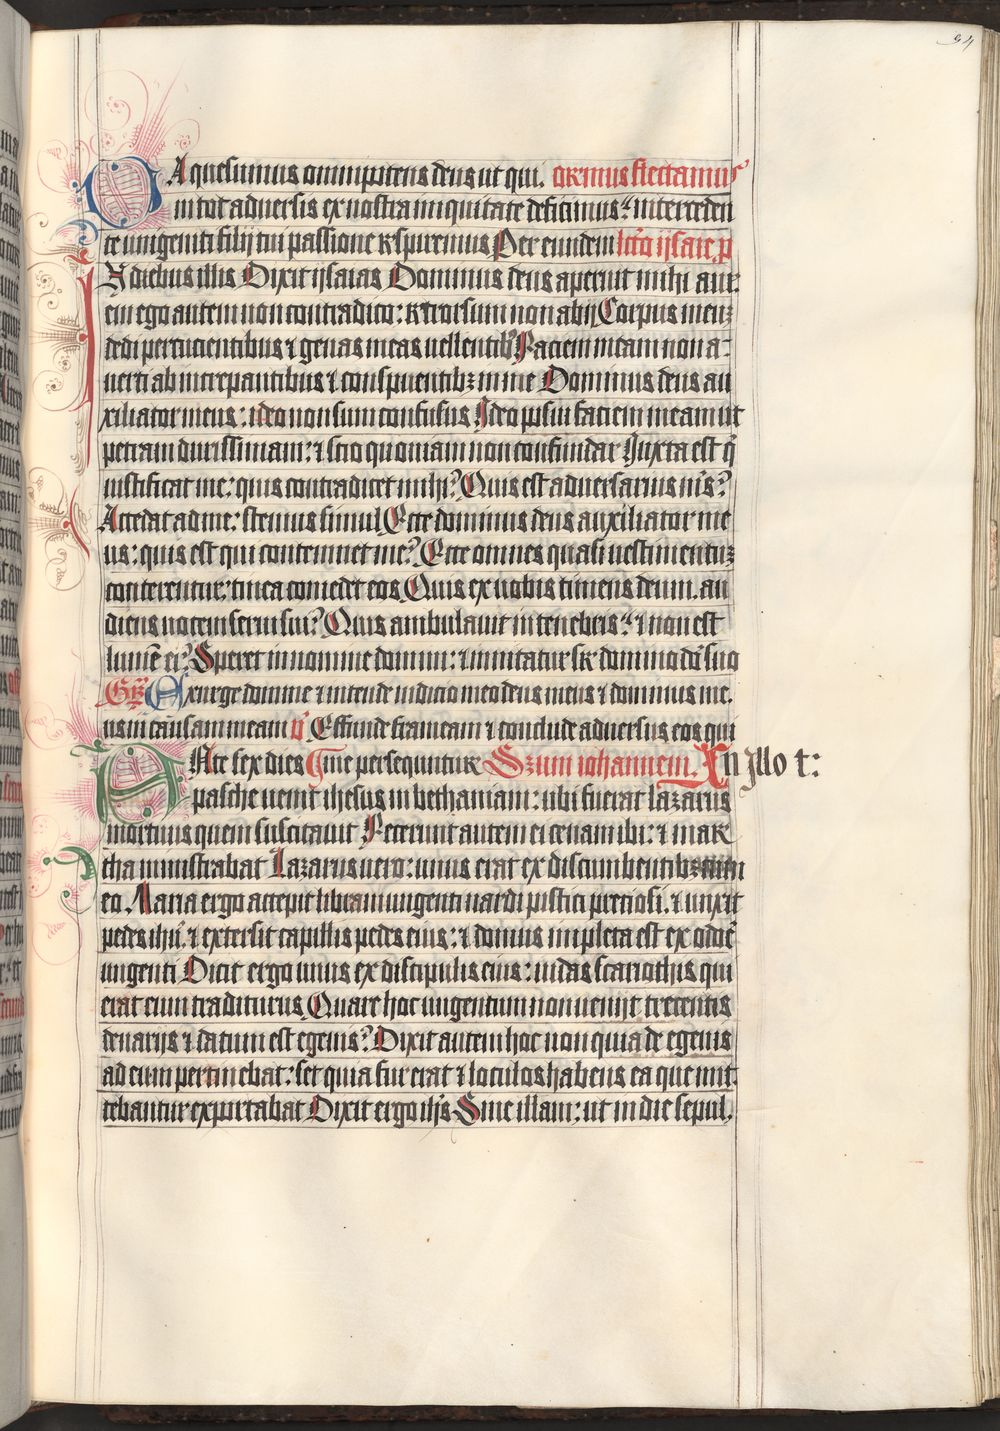 94
DA quesumus omnipotens deus ut qui. oremus flectamus
in tot aduersis ex nostra infirmitate deficimus: interceden
te unigeniti filij tui passione respiremus Per eundem lctio ysaie p
IN diebus illis Dixit ysaias Dominus deus aperuit mihi aur
em ego autem non contradico: retrorsum non abij Corpus meuz
dedi percucientibus ⁊ genas meas uellentibꝰ Faciem meam non a-
uerti ab increpantibus ⁊ conspuentibꝫ in me Dominus deus au
xiliator meus: ideo non sum confusus Ideo posui faciem meam ut
petram durissimam: ⁊ scio quoniam non confundar Iuxta est qͥ
iustificat me: quis contradicet mihi? Quis est aduersarius mꝰs?
Accedat ad me: stemus simul Ecce dominus deus auxiliator me
us: quis est qui contempnet me? Ecce omnes quasi uestimentuꝫ
conterentur: tinea comedet eos Quis ex uobis timens deum. au
diens uocem serui sui? Quis ambulauit in tenebris? ⁊ non est
lumē ei? Speret in nomine domini: ⁊ innitatur sr dominū dm̄ suū
Gr̄ Exurge domine ⁊ intende iudicio meo deus meus ⁊ dominus me.
us in causam meam v̄ Effunde frameam ⁊ conclude aduersus eos qui
ANte sex dies me persequntur Sczum iohannem. In illo t:
pasche uenit ihesus in bethaniam: ubi fuerat lazarus
mortuus quem suscitauit Fecerunt autem ei cenam ibi: ⁊ mar
tha ministrabat Lazarus uero: unus erat ex discumbentibꝫ cum
eo. Maria ergo accepit libram ungenti nardi pistici preciosi. ⁊ unxit
pedes ihū. ⁊ extersit capillis pedes eius: ⁊ domus impleta est ex odoē
ungenti Dicit ergo unus ex discipulis eius: iudas scariothis qui
erat eum traditurus Quare hoc ungentum non uenijt trecentis
denarijs ⁊ datum est egenis? Dixit autem hoc non quia de egenis
ad eum pertinebat: set quia fur erat ⁊ loculos habens ea que mit
tebantur exportabat Dixit ergo ihs Sine illam: ut in die sepul.